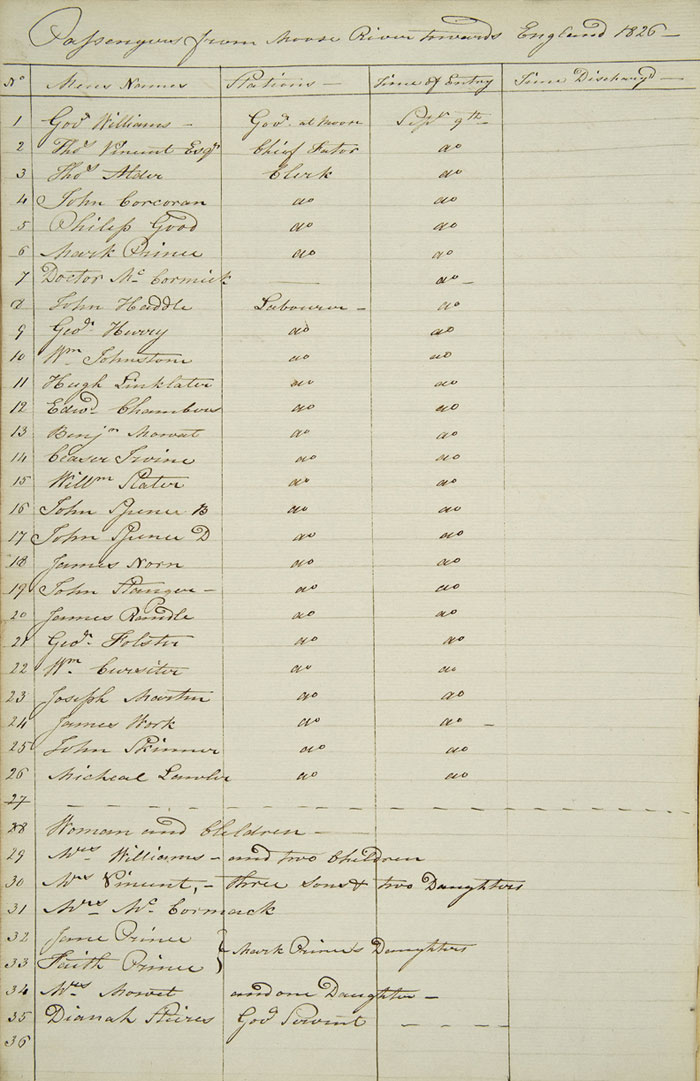 Passengers from Moose River towards England 1826 —
No Mens Names Stations — Time of Entry Time Dischargd —
1 Govr Williams — Govr at Moose Septr 9th
2 Thos Vincent Esqr Chief Fator do
3 Thos Alder Clerk do
4 John Corcoran do do
5 Philip Good do do
6 Mark Prince do do
7 Doctor Mc Cormick — do —
8 John Haddle Labourer — do
9 Geoe Herry do do
10 Wm Johnston do do
11 Hugh Linklater do do
12 Edwd Chambers do do
13 Benjn Mowat do do
14 Ceaser Irvine do do
15 Willm Slater do do
16 John Spence B do do
17 John Spence D do do
18 James Norn do do
19 John Stanger — do do
20 James Randle do do
21 Geoe Folster do do
22 Wm Cursiter do do
23 Joseph Martin do do
24 James Work do do —
25 John Skinner do do
26 Micheal Lawler do do
27 — — — — — — — — — — — —
28 Woman and Children —
29 Mrs Williams — and two Children
30 Mrs Vincent, — three Sons & two Daughters
31 Mrs Mc Cormack
32 Jane Prince } Mark Prince's Daughters
33 Faith Prince
34 Mrs Mowet and one Daughter —
35 Dianah Govr Servent — — — —
36